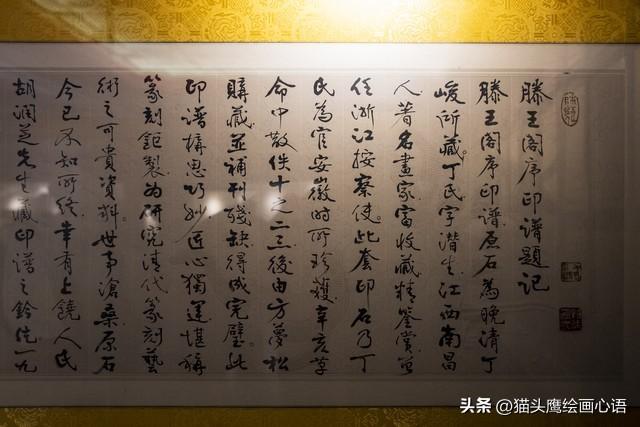 滕王阁序印谱題記
滕王阁序印谱原石為晚清丁
峻所藏。丁氏字潛生江西南昌
人著名畫家富收藏精鉴賞曾
任浙江按察使。此套印石乃丁
氏為官安徽时所珍獲辛亥革
命中散佚十之二三後由方夢松
購藏並補刊殘缺得成完璧。此
印谱構思巧妙匠心獨運堪稱
篆刻鉅製为研究清代篆刻藝
術之可貴資料世事滄桑原石
今已不知所终幸有上饒人氏
胡润芝先生藏印谱之鈐
头条 @猫头鹰绘画心语